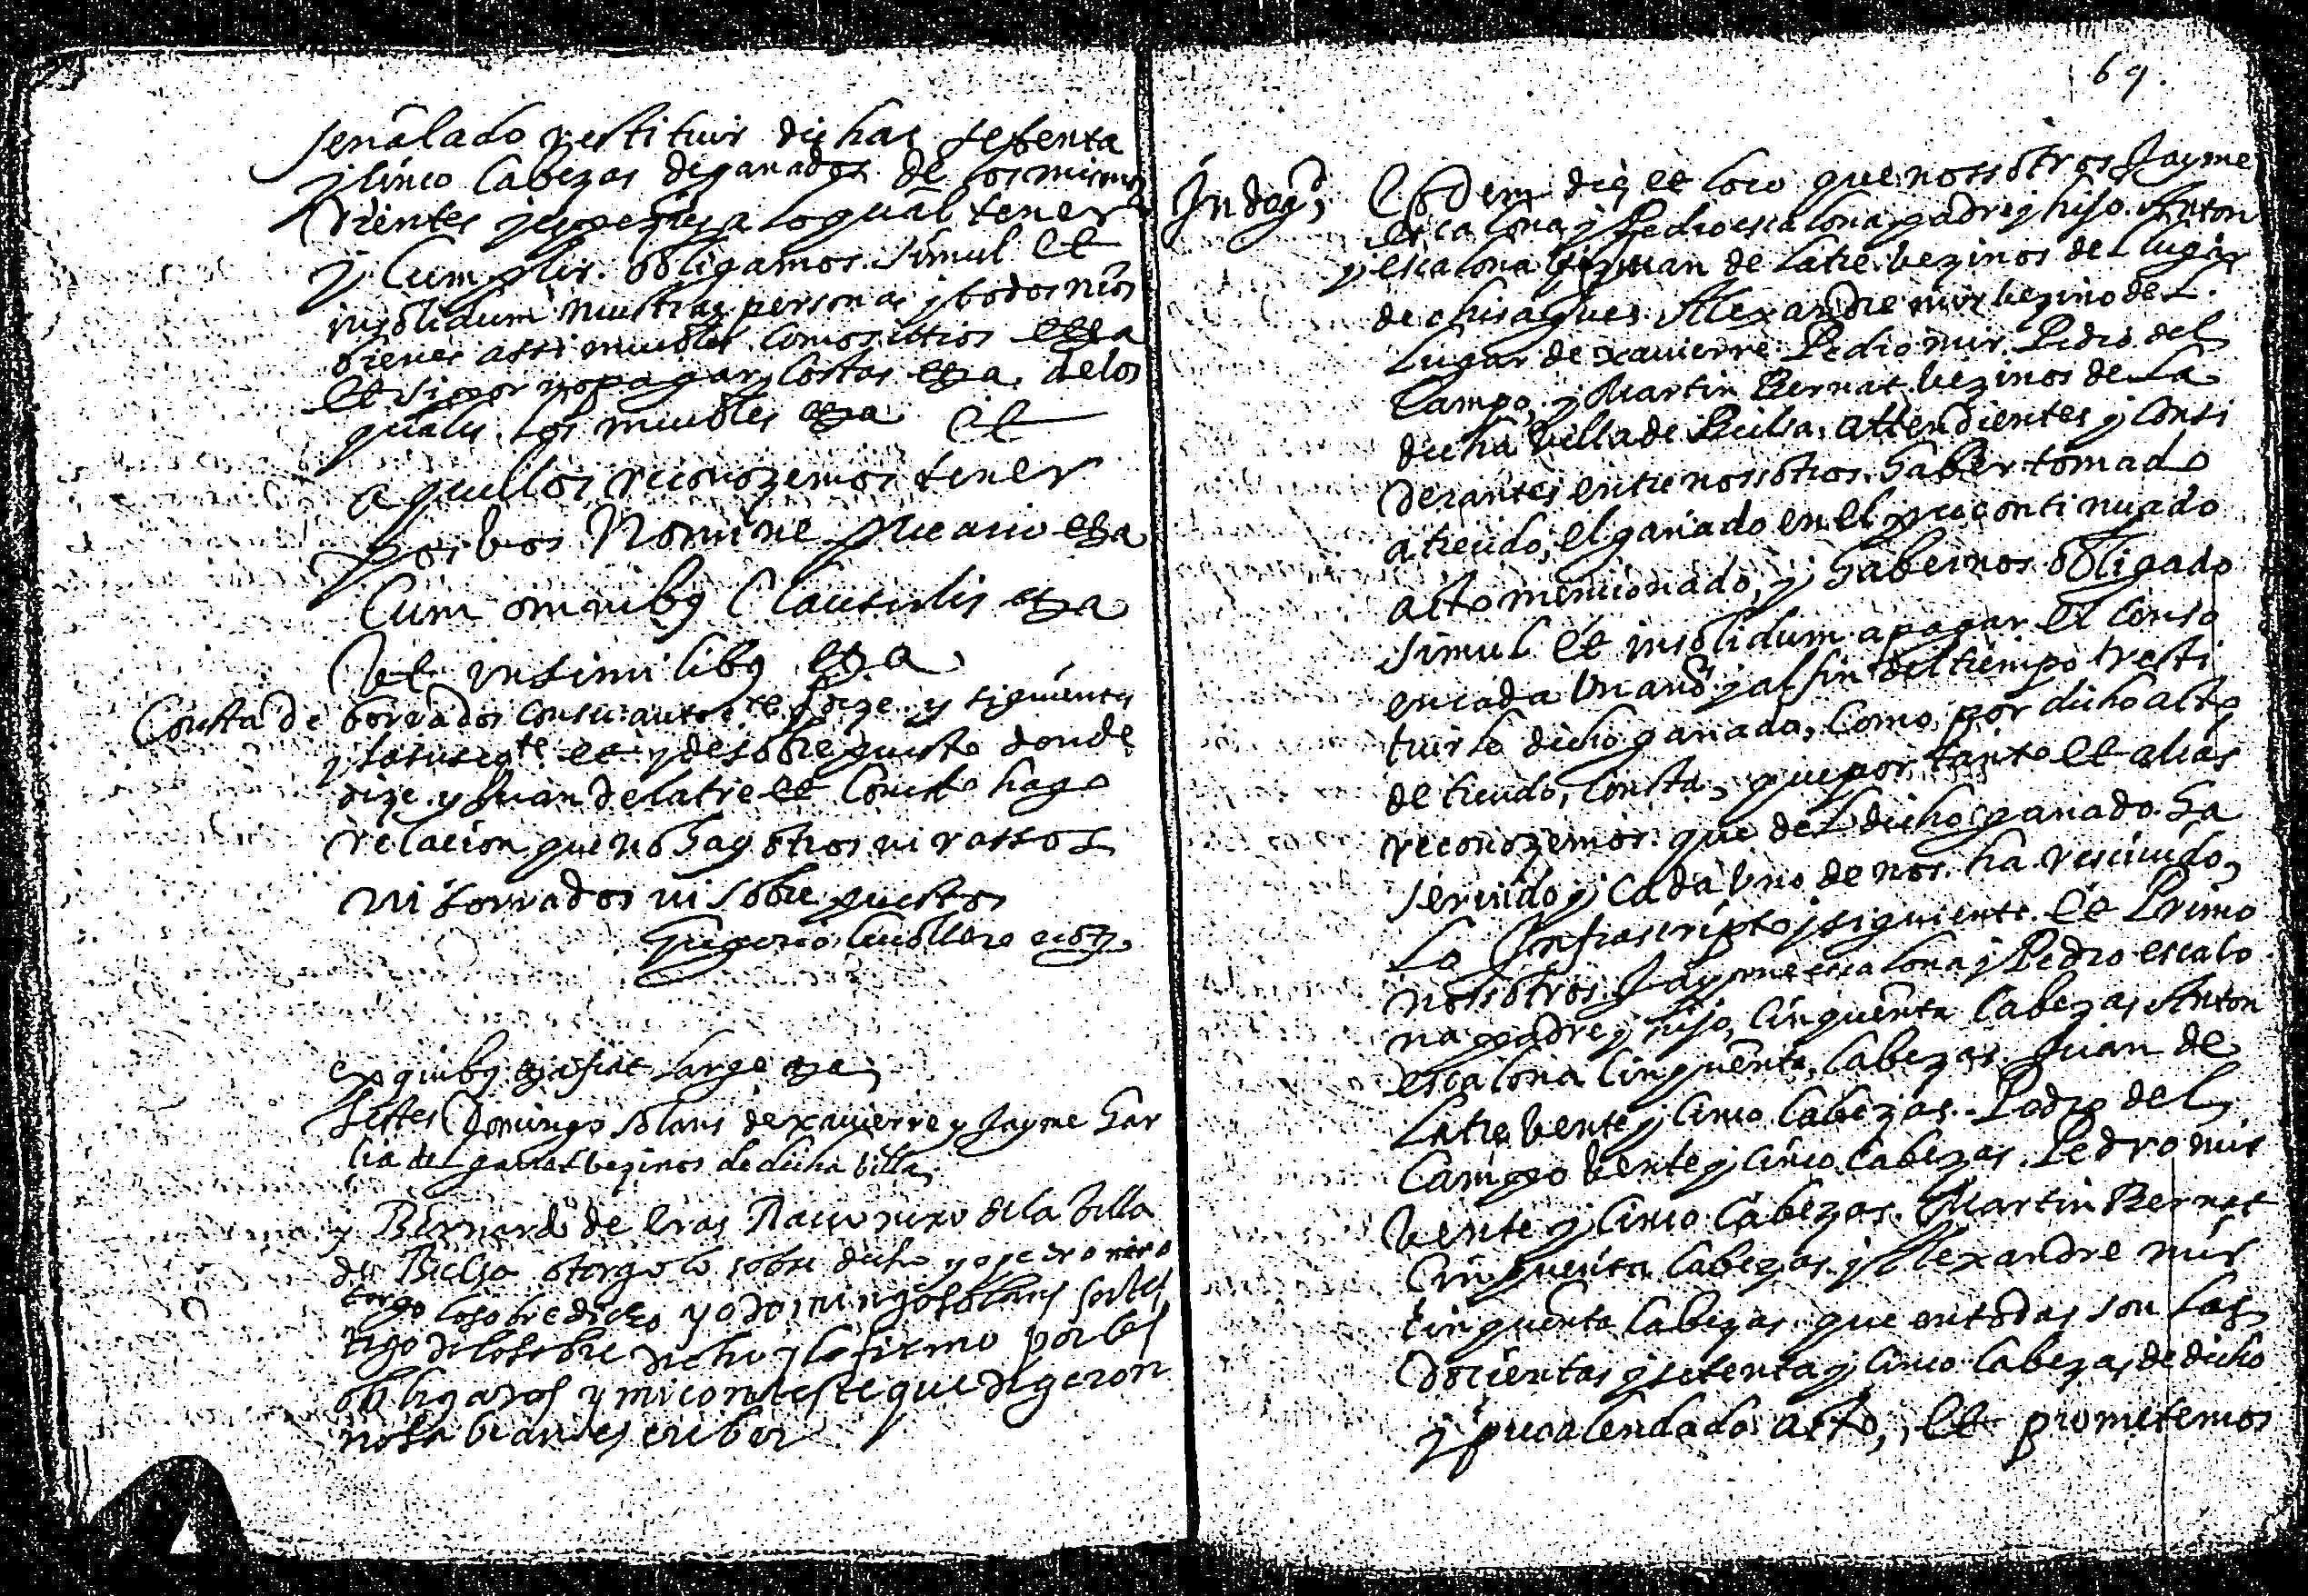 señalado restituir dichas setenta
y cinco Cabezas de ganados de los mismos
Dientes y especie a lo qual tener
y Cumplir. obligamos simul et
insolidum nuestras personas y todos nros
bienes assi muebles como sittios etta
et si por no pagar Costas etta. de los
quales los muebles etta et
aquellos reconozemos tener
por vos Nomine precario etta
Cum omnibus Clausulis etta
Ut in similibus etta
Consta de borrados con su auto dize y siguientes
y de sobre puesto donde
dize y Juan de latre et Conste hago
relacion que no hay otros ni rassos
ni borrados ni sobre puestos
Gregorio not.
ex quibus etta fiat large etta
Testes Domingo Solans de xavierre y Jayme Gar
cia del vezinos de dicha villa
y Bernard de Eras Racionero de la Villa
de Bielsa otorgo lo sobre dicho yo pedro mir o
torgo lo sobre dicho yo domingo solans soi tes
tigo de lo sobre dicho y lo firmo por los
obligados y mi conteste que digeron
no sabian escriber
69.
Eodem die et loco que nossotros Jayme
escalona y Pedro escalona padre y hijo. Anton
escalona Juan de Latre vezinos del lugar
de chisagues Alexandre mir vezino del
Lugar de xavierre Pedro mir Pedro del
Campo, y Martin Bernat vezinos de la
dicha villa de Bielsa, attendientes y Consi
derantes entre nossotros haber tomado
a treudo, el ganado en el precontinuado
acto mencionado, y habernos obligado
simul et insolidum a pagar el Censo
en cada un año y al fin del tiempo resti
tuirlo dicho ganado, Como por dicho acto
de treudo, Consta, que por tanto et alias
reconozemos que del dicho ganado ha
servido y cada uno de nos ha rescivido,
Lo Infrascripto y siguiente. et Primo
nossotros Jayme escalona y Pedro escalo
na padre y hijo, Cinquenta Cabezas Anton
escalona Cinquenta Cabezas. Juan de
Latre vente y Cinco Cabezas. Pedro del
Campo vente y Cinco Cabezas. Pedro mir
vente y Cinco Cabezas. Martin Bernat
Cinquenta Cabezas. y Alexandre mir
Cinquenta Cabezas. que en todas son las
Docientas y setenta y Cinco Cabezas de dicho
y precalendado acto, et prometemos